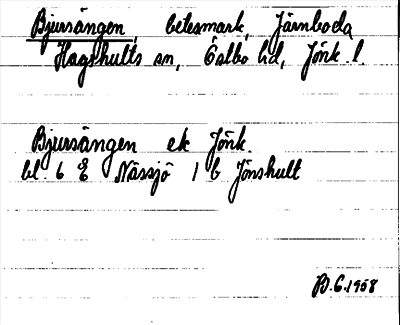 Bjursängen, betesmark, Järnboda
Hagshults sn, Östbo hd, Jönk. l.
Bjursängen ek Jönk.
bl. 6 E Nässjö 1 b Jönshult
B.G. 1958